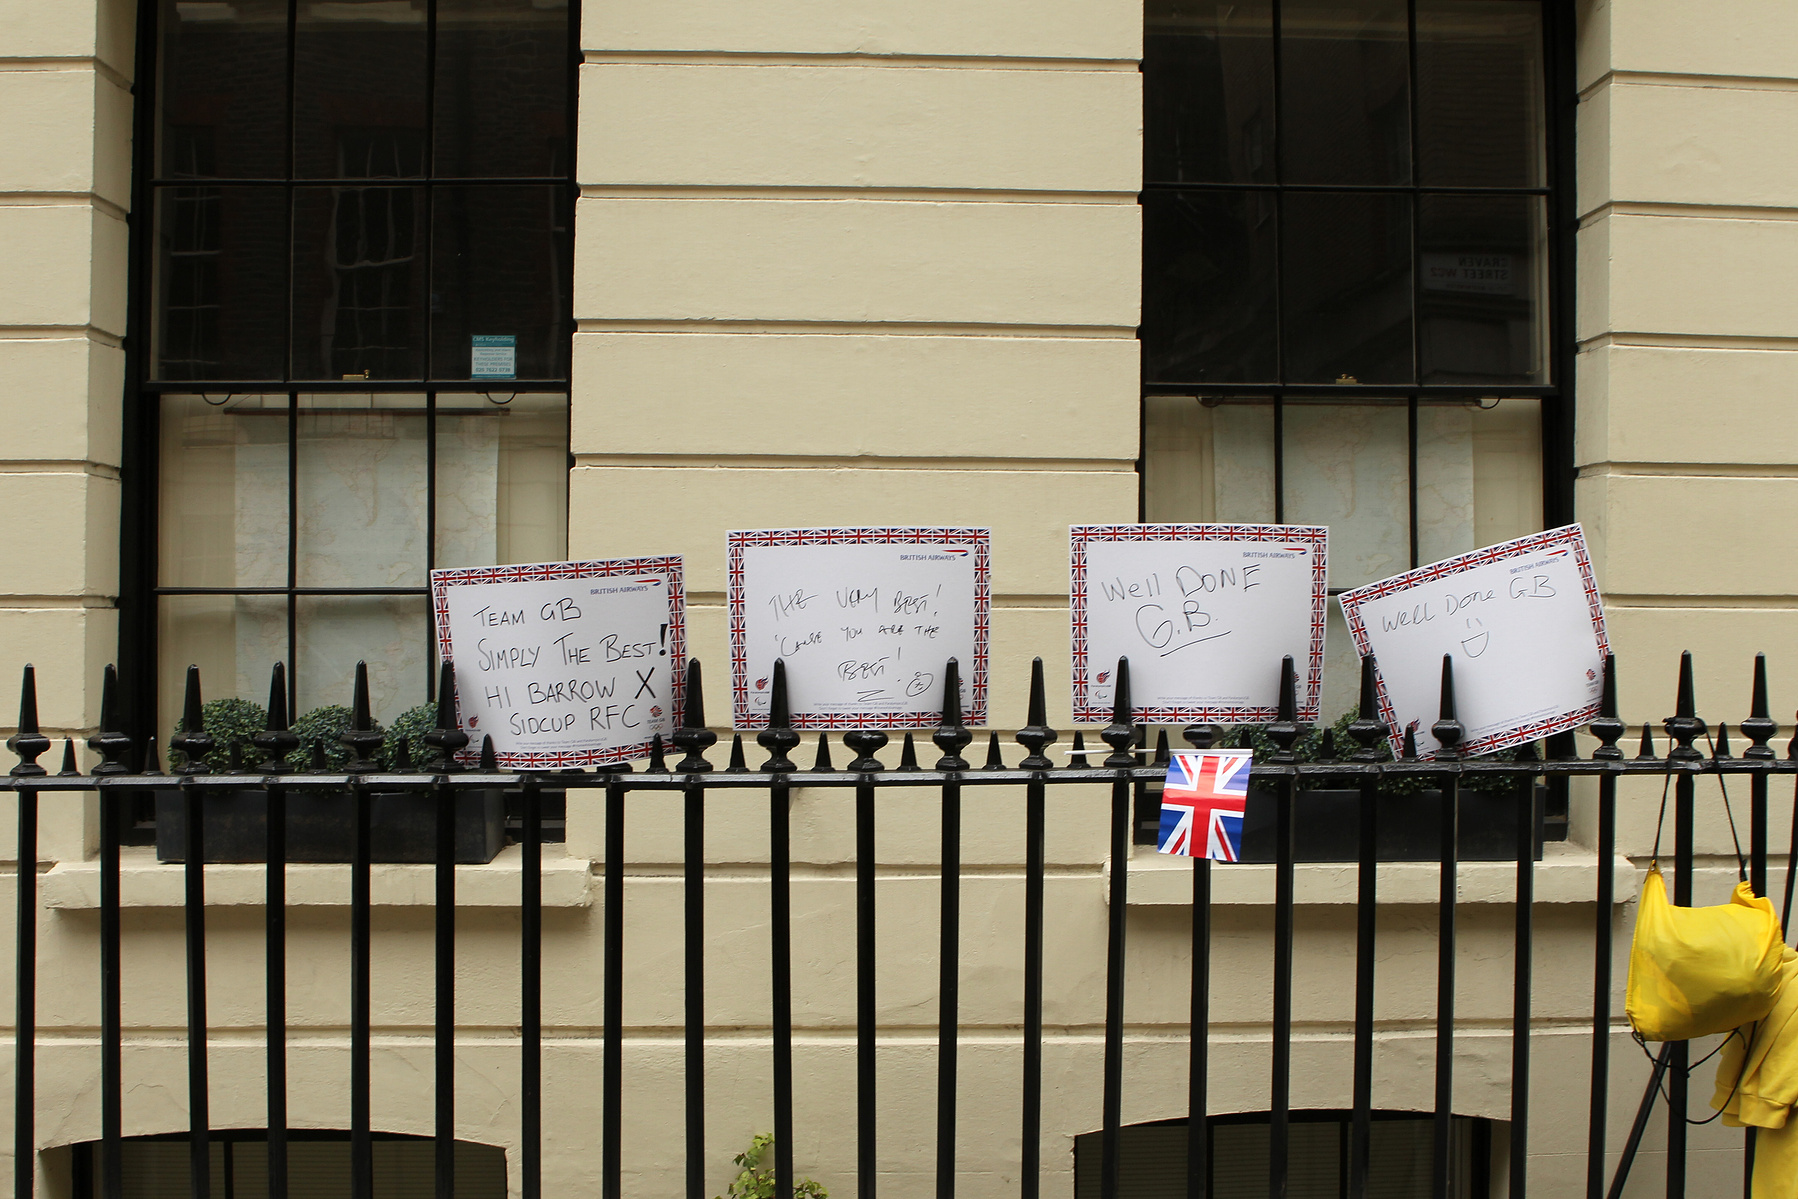 CRAVEN
STREET WC2
CMS Keyholding
KEYHOLDERS FOR
THESE PREMISES
BRITISH AIRWAYS
TEAM GB
SIMPLY THE BEST!
HI BARROW X
SIDCUP RFC
TEAM GB
BRITISH AIRWAYS
THE VERY BEST!
'CAUSE YOU ARE THE
BEST!
BRITISH AIRWAYS
Well DONE
G.B.
BRITISH AIRWAYS
Well Done GB